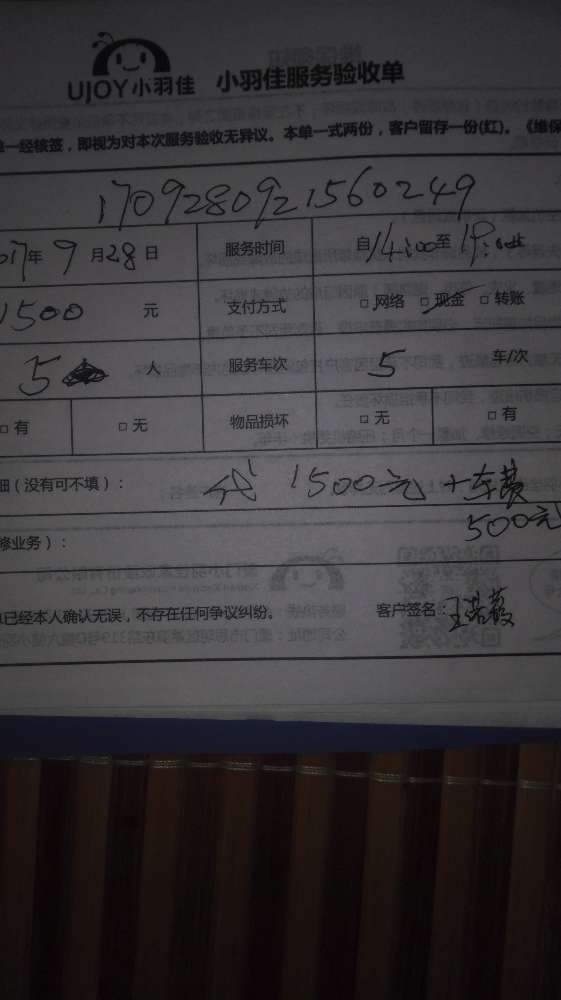 UJOY小羽佳 小羽佳服务验收单
一经核签，即视为对本次服务验收无异议。本单一式两份，客户留存一份(红)。《维保
1709280921560249
017年 9 月 28 日 服务时间 自 14:00 至 19:00止
1500 元 支付方式 □ 网络 □ 现金 □ 转账
5 人 服务车次 5 车/次
□ 有 □ 无 物品损坏 □ 无 □ 有
细（没有可不填）： 1500元+车费
500元
修业务）：
已经本人确认无误，不存在任何争议纠纷。 客户签名：王